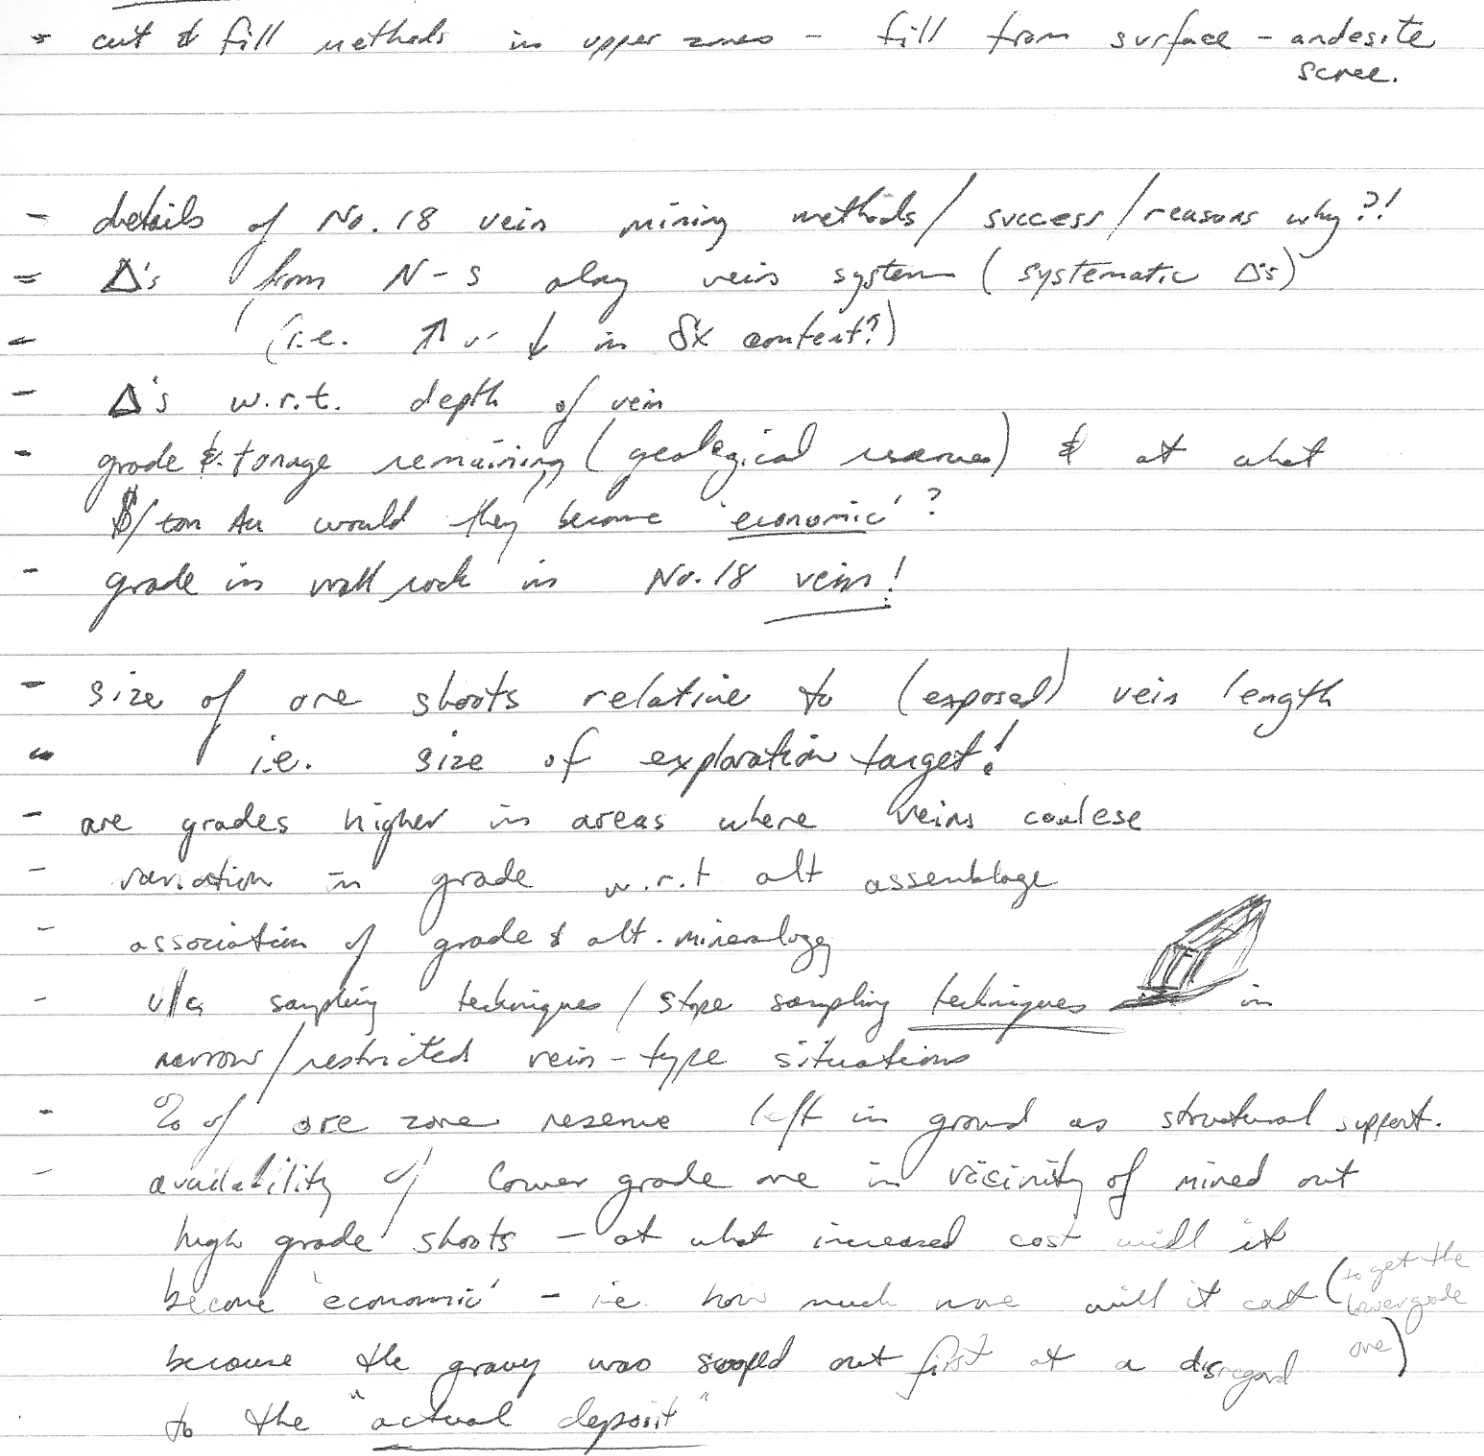 - cut & fill methods in upper zones - fill from surface - andesite
scree.
- details of No. 18 vein mining methods/success/reasons why?!
- Δ's from N-S along vein system (systematic Δ's)
- (i.e. ↑ or ↓ in δx content?)
- Δ's w.r.t. depth of vein
- grade & tonage remaining (geological reserves) & at what
$/ton Au would they become 'economic'?
- grade in wall rock in No. 18 vein!
- size of ore shoots relative to (exposed) vein length
- i.e. size of exploration target!
- are grades higher in areas where veins coalese
- variation in grade w.r.t alt assemblage
- association of grade & alt. mineralogy
- u/g sampling techniques / stope sampling techniques in
narrow/restricted vein-type situations
- % of ore zone reserve left in ground as structural support.
- availability of lower grade ore in vicinity of mined out
high grade shoots - at what increased cost will it
become 'economic' - i.e. how much more will it cost (to get the
lower grade
ore)
because the gravy was scooped out first at a disregard
to the "actual deposit"